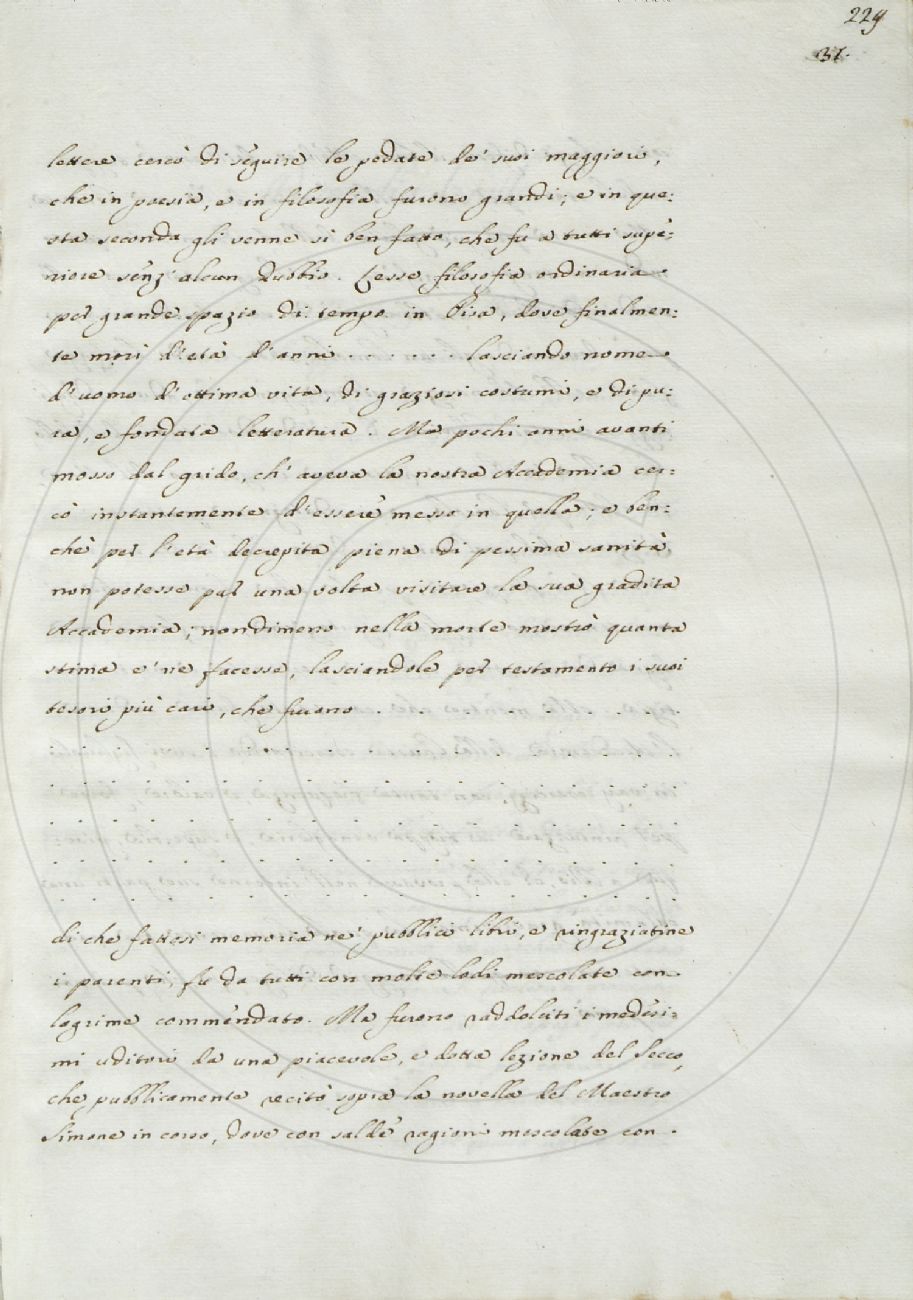 229
37.
lettere cercò di seguire le pedate de' suoi maggiori,
che in poesia, e in filosofia furono grandi; e in que:
sta seconda gli venne sì ben fatto, che fu a tutti supe:
riore senz' alcun dubbio. Lesse filosofia ordinaria
per grande spazio di tempo in Pisa, dove finalmen:
te morì d'età d'anni . . . . . . lasciando nome
d'uomo d'ottima vita, di graziosi costumi, e di pu:
ra, e fondata letteratura. Ma pochi anni avanti
mosso dal grido, ch' aveva la nostra Accademia cer:
cò instantemente d'essere messo in quella; e ben:
chè per l'età decrepita piena di pessima sanità
non potesse pur una volta visitare la sua gradita
Accademia; nondimeno nella morte mostrò quanta
stima e' ne facesse, lasciandole per testamento i suoi
tesori più cari, che furano . . . . . . . . .
. . . . . . . . . . . . . . . . . .
. . . . . . . . . . . . . . . . . .
. . . . . . . . . . . . . . . . . .
. . . . . . . . . . . . . . . . . .
. . . . . . . . . . . . . . . . . .
di che fattosi memoria ne' pubblici libri, e ringraziatine
i parenti, fu da tutti con molte lodi mescolate con
lagrime commendato. Ma furono raddolciti i medesi:
mi uditori da una piacevole, e dotta lezione del Secco,
che pubblicamente recitò sopra la novella del Maestro
Simone in corso, dove con salde ragioni mescolate con